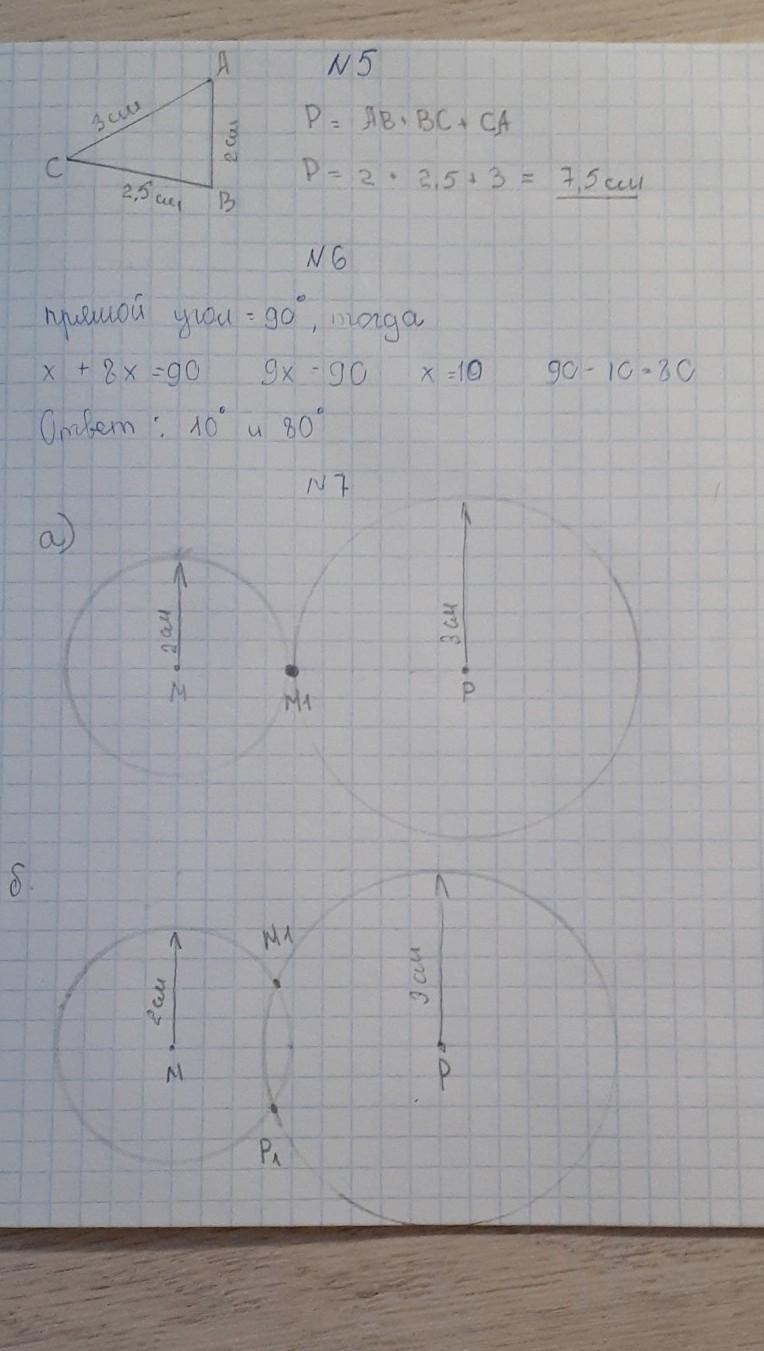 N5
A
3 см
2 см
C
2,5 см
B
P = AB + BC + CA
P = 2 + 2,5 + 3 = 7,5 см
N6
прямой угол = 90°, тогда
x + 8x = 90 9x = 90 x = 10 90 - 10 = 80
Ответ: 10° и 80°
N7
а)
2 см
M
M1
3 см
P
б.
2 см
M
M1
P1
3 см
P